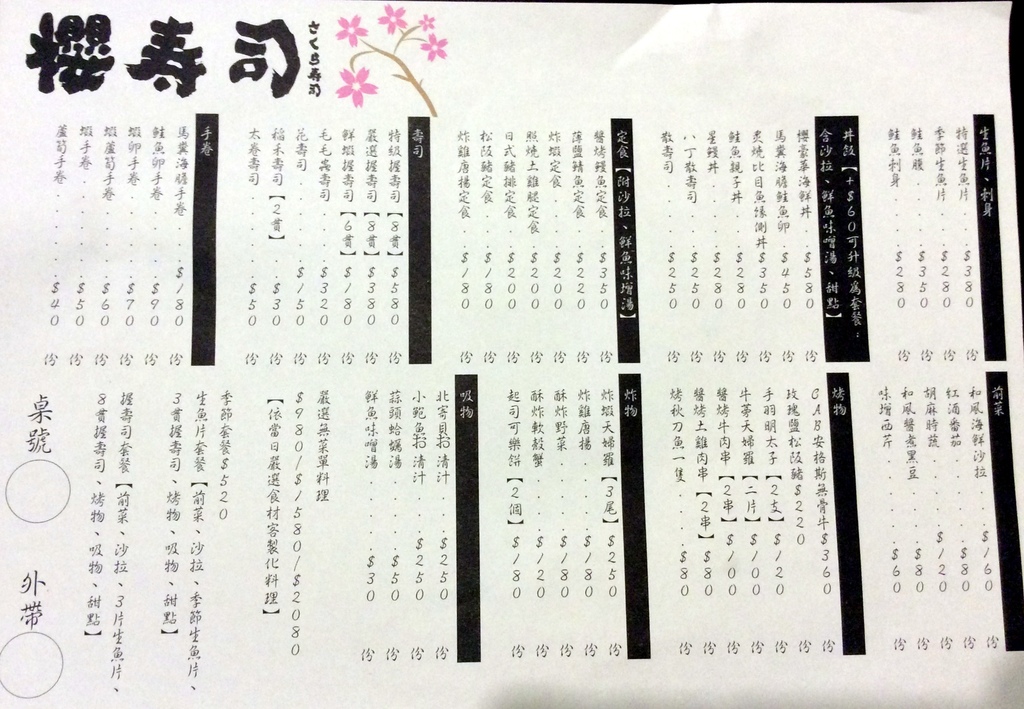 櫻壽司
さくら寿司
生魚片、刺身
特選生魚片......$380 份
季節生魚片....$280 份
鮭魚腹......$350 份
鮭魚刺身....$280 份
丼飯【+$60可升級為套餐:
含沙拉、鮮魚味噌湯、甜點】
櫻豪華海鮮丼....$580 份
馬糞海膽鮭魚卵..$450 份
炙燒比目魚緣側丼..$350 份
鮭魚親子丼....$280 份
星鰻丼......$280 份
八丁散壽司....$250 份
散壽司......$250 份
定食【附沙拉、鮮魚味噌湯】
醬烤鰻魚定食..$350 份
薄鹽鯖魚定食..$220 份
炸蝦定食....$200 份
照燒土雞腿定食..$200 份
日式豬排定食..$200 份
松阪豬定食..$180 份
炸雞唐揚定食..$180 份
壽司
特級握壽司【8貫】$580 份
嚴選握壽司【8貫】$380 份
鮮蝦握壽司【6貫】$180 份
毛毛蟲壽司....$320 份
花壽司......$150 份
稻禾壽司【2貫】..$30 份
太卷壽司....$50 份
手卷
馬糞海膽手卷..$180 份
鮭魚卵手卷....$90 份
蝦卵手卷....$70 份
蝦蘆筍手卷....$60 份
蝦手卷......$50 份
蘆筍手卷....$40 份
前菜
和風海鮮沙拉....$160 份
紅酒番茄......$80 份
胡麻時蔬......$120 份
和風醬煮黑豆....$80 份
味增西芹......$60 份
烤物
CAB安格斯無骨牛$360 份
玫瑰鹽松阪豬$220 份
手羽明太子【2支】..$120 份
牛蒡天婦羅【二片】..$100 份
醬烤牛肉串【2串】..$100 份
醬烤土雞肉串【2串】$80 份
烤秋刀魚一隻....$80 份
炸物
炸蝦天婦羅【3尾】$250 份
炸雞唐揚......$180 份
酥炸野菜......$180 份
酥炸軟殼蟹....$120 份
起司可樂餅【2個】$180 份
吸物
北寄貝拾清汁..$250 份
小鮑魚拾清汁..$250 份
蒜頭蛤蠣湯....$50 份
鮮魚味噌湯....$30 份
嚴選無菜單料理
$980/$1580/$2080
【依當日嚴選食材客製化料理】
季節套餐$520
生魚片套餐【前菜、沙拉、季節生魚片、
3貫握壽司、烤物、吸物、甜點】
握壽司套餐【前菜、沙拉、3片生魚片、
8貫握壽司、烤物、吸物、甜點】
桌號
外帶